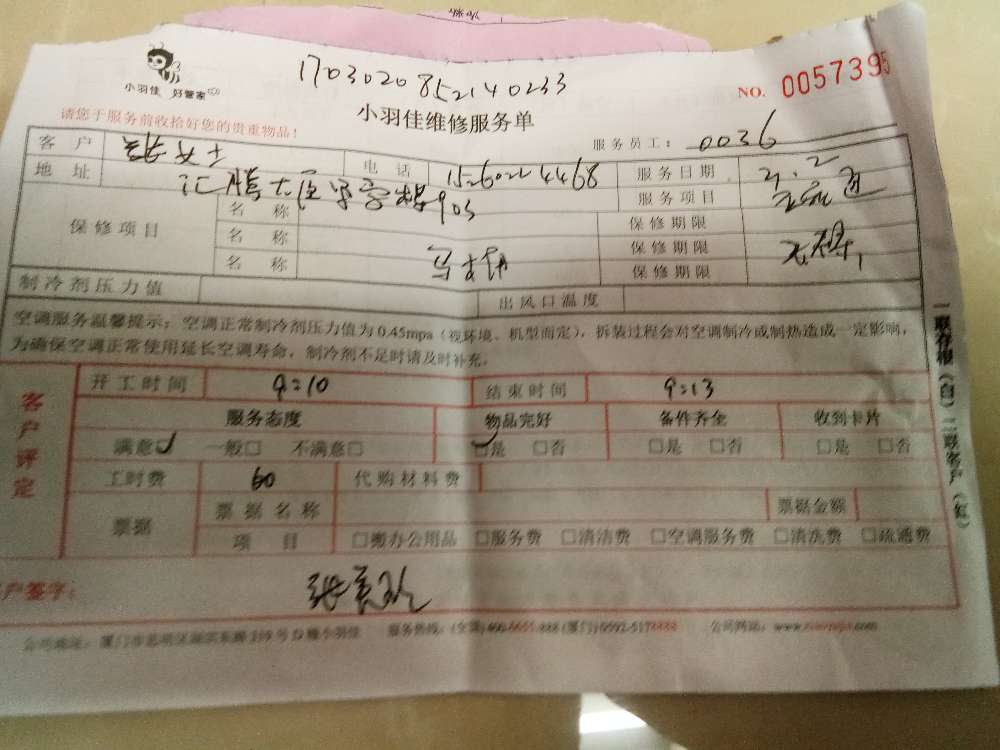 1703020852140233
小羽佳 好管家
NO. 0057395
小羽佳维修服务单
请您于服务前收拾好您的贵重物品!
服务员工: 0036
客户 女士 电话 15260224468 服务日期 2
地址 汇腾大厦 903 服务项目
保修项目 名称 保修期限
名称 保修期限
名称 保修期限
制冷剂压力值 出风口温度
空调服务温馨提示:空调正常制冷剂压力值为0.45mpa(视环境、机型而定),拆装过程会对空调制冷或制热造成一定影响,
为确保空调正常使用延长空调寿命,制冷剂不足时请及时补充。
客户评定
开工时间 9:10 结束时间 9:13
服务态度 物品完好 备件齐全 收到卡片
满意☑ 一般□ 不满意□ ☑是 □否 □是 □否 □是 □否
工时费 60 代购材料费
票据 票据名称 票据金额
项目 □搬办公用品 □服务费 □清洁费 □空调服务费 □清洗费 □疏通费
户签字:
公司地址:厦门市思明区 小羽佳 服务热线:(全国) (厦门)0592-5178888 公司网站:www.
一联存根(白)二联客户(红)